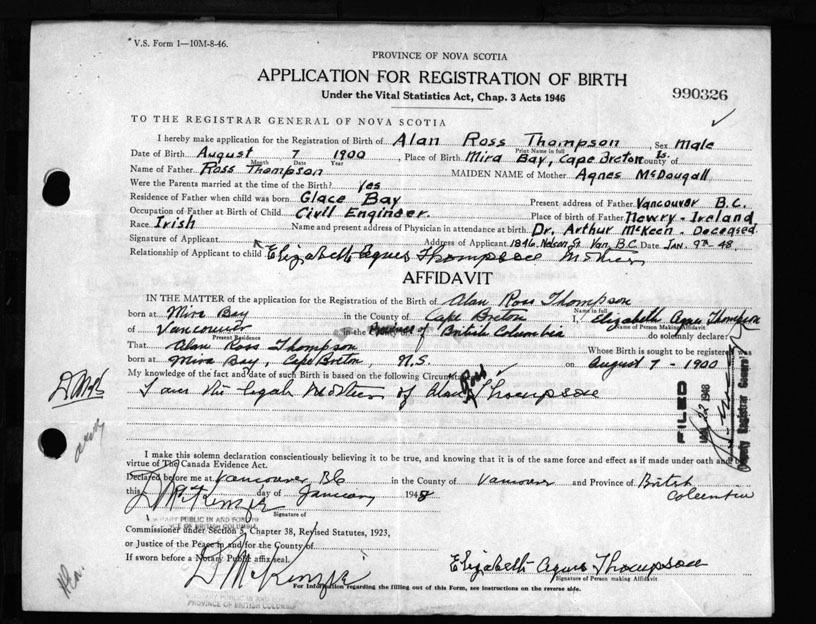 V.S. Form 1—10M-8-46.
PROVINCE OF NOVA SCOTIA
APPLICATION FOR REGISTRATION OF BIRTH
Under the Vital Statistics Act, Chap. 3 Acts 1946
990326
TO THE REGISTRAR GENERAL OF NOVA SCOTIA
I hereby make application for the Registration of Birth of Alan Ross Thompson, Sex Male
Print Name in full
Date of Birth August 7 1900, Place of Birth Mira Bay, Cape Breton Is. County of
Month Date Year
Name of Father Ross Thompson MAIDEN NAME of Mother Agnes McDougall
Were the Parents married at the time of the Birth? Yes
Residence of Father when child was born Glace Bay Present address of Father Vancouver B.C.
Occupation of Father at Birth of Child Civil Engineer. Place of birth of Father Newry - Ireland
Race Irish Name and present address of Physician in attendance at birth Dr. Arthur McKeen - Deceased.
Signature of Applicant Address of Applicant 1846 Nelson St Van, B.C. Date Jan. 9th - 48.
Relationship of Applicant to child Elizabeth Agnes Thompson Mother
AFFIDAVIT
IN THE MATTER of the application for the Registration of Birth of Alan Ross Thompson
Name in full
born at Mira Bay in the County of Cape Breton I, Elizabeth Agnes Thompson
Name of Person Making Affidavit
of Vancouver in the Province of British Columbia do solemnly declare:
Present Residence
That Alan Ross Thompson Whose Birth is sought to be registered
born at Mira Bay, Cape Breton, N.S. on August 7 - 1900
My knowledge of the fact and date of such Birth is based on the following Circumstances
I am the legal Mother of Alan Ross Thompson
FILED
1948
County Registrar General
I make this solemn declaration conscientiously believing it to be true, and knowing that it is of the same force and effect as if made under oath and by
virtue of The Canada Evidence Act.
Declared before me at Vancouver, BC in the County of Vancouver and Province of British Columbia
this day of January 1948
D McKenzie
Signature of
NOTARY PUBLIC IN AND FOR THE
PROVINCE OF BRITISH COLUMBIA
Commissioner under Section 5, Chapter 38, Revised Statutes, 1923,
or Justice of the Peace in and for the County of
If sworn before a Notary Public affix seal.
D McKenzie
Elizabeth Agnes Thompson
Signature of Person making Affidavit
For Information regarding the filling out of this Form, see instructions on the reverse side.
NOTARY PUBLIC IN AND FOR THE
PROVINCE OF BRITISH COLUMBIA